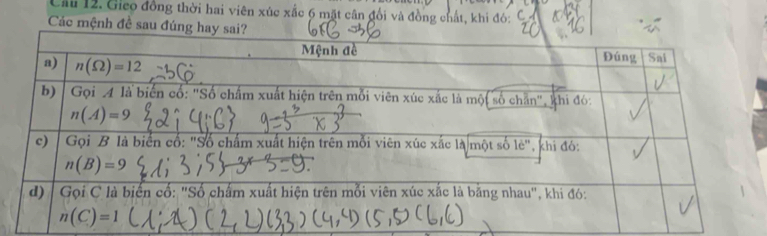 Câu 12. Gieo đồng thời hai viên xúc xắc 6 mặt cân đối và đồng chất, khi đó:
Các mệnh đề sau đúng hay sai? 6×6 =36
Mệnh đề Đúng Sai
a) n(Ω)=12 =36
b) Gọi A là biến cố: "Số chấm xuất hiện trên mỗi viên xúc xắc là một số chẵn", khi đó:
n(A)=9 {2; 4; 6}
c) Gọi B là biến cố: "Số chấm xuất hiện trên mỗi viên xúc xắc là một số lẻ", khi đó:
n(B)=9 {1; 3; 5} 3×3=9.
d) Gọi C là biến cố: "Số chấm xuất hiện trên mỗi viên xúc xắc là bằng nhau", khi đó:
n(C)=1 (1;1) (2,2) (3,3) (4,4) (5,5) (6,6)